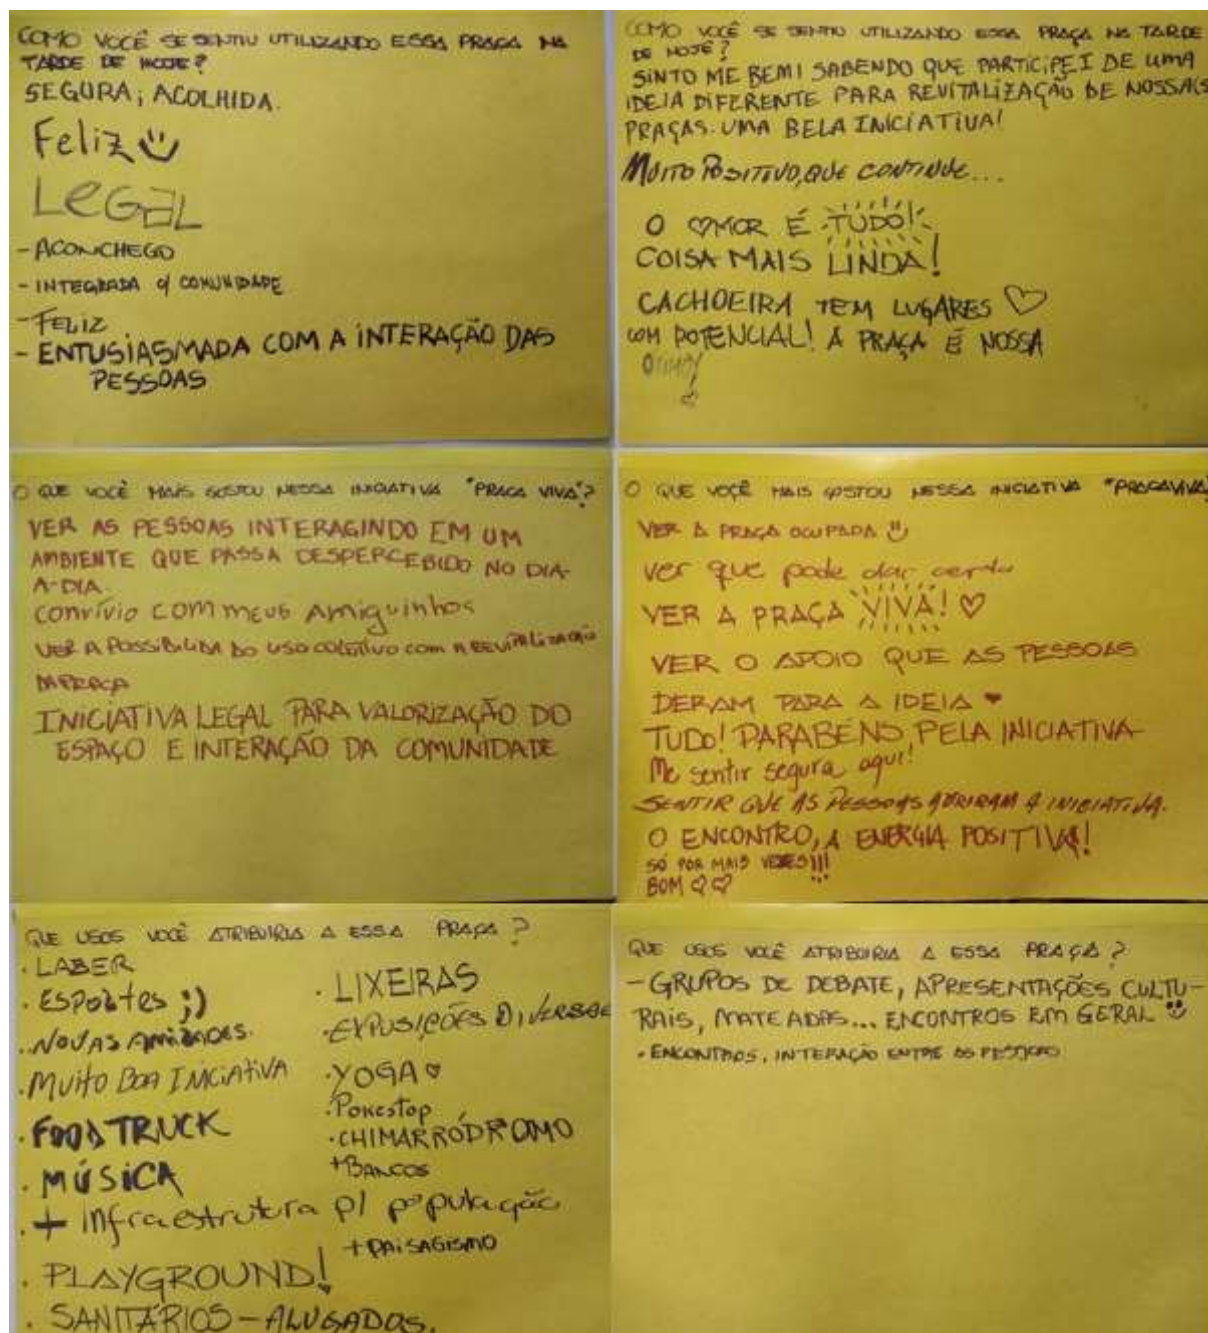 COMO VOCÊ SE SENTIU UTILIZANDO ESSA PRAÇA NA
TARDE DE HOJE?
SEGURA; ACOLHIDA.
Feliz
LEGAL
- ACONCHEGO
- INTEGRADA C/ COMUNIDADE
- FELIZ
- ENTUSIASMADA COM A INTERAÇÃO DAS
PESSOAS
COMO VOCÊ SE SENTIU UTILIZANDO ESSA PRAÇA NA TARDE
DE HOJE?
SINTO ME BEM! SABENDO QUE PARTICIPEI DE UMA
IDEIA DIFERENTE PARA REVITALIZAÇÃO DE NOSSA(S
PRAÇAS. UMA BELA INICIATIVA!
MUITO POSITIVO, QUE CONTINUE...
O ♡MOR É TUDO!
COISA MAIS LINDA!
CACHOEIRA TEM LUGARES ♡
COM POTENCIAL! A PRAÇA É NOSSA
O QUE VOCÊ MAIS GOSTOU NESSA INICIATIVA "PRAÇA VIVA"?
VER AS PESSOAS INTERAGINDO EM UM
AMBIENTE QUE PASSA DESPERCEBIDO NO DIA-
A-DIA.
Convívio com meus Amiguinhos
VER A POSSIBILIDA DO USO COLETIVO COM A REVITALIZAÇÃO
DA PRAÇA
INICIATIVA LEGAL PARA VALORIZAÇÃO DO
ESPAÇO E INTERAÇÃO DA COMUNIDADE
O QUE VOCÊ MAIS GOSTOU NESSA INICIATIVA "PRAÇA VIVA"
VER A PRAÇA OCUPADA
ver que pode dar certo
VER A PRAÇA VIVA! ♡
VER O APOIO QUE AS PESSOAS
DERAM PARA A IDEIA ♥
TUDO! PARABÉNS PELA INICIATIVA
Me sentir segura aqui!
SENTIR QUE AS PESSOAS ADERIRAM A INICIATIVA.
O ENCONTRO, A ENERGIA POSITIVA!
SÓ POR MAIS VEZES!!!
BOM ♡♡
QUE USOS VOCÊ ATRIBUIRIA A ESSA PRAÇA?
. LAZER
. ESPORTES ;)
. NOVAS AMIZADES.
. MUITO BOA INICIATIVA
. FOOD TRUCK
. MÚSICA
. + infraestrutura p/ população
. PLAYGROUND!
. SANITÁRIOS - ALUGADOS.
. LIXEIRAS
. EXPOSIÇÕES DIVERSAS
. YOGA ♡
. Pokestop
. CHIMARRÓDROMO
+ BANCOS
+ PAISAGISMO
QUE USOS VOCÊ ATRIBUIRIA A ESSA PRAÇA?
- GRUPOS DE DEBATE, APRESENTAÇÕES CULTU-
RAIS, MATEADAS... ENCONTROS EM GERAL
. ENCONTROS, INTERAÇÃO ENTRE AS PESSOAS